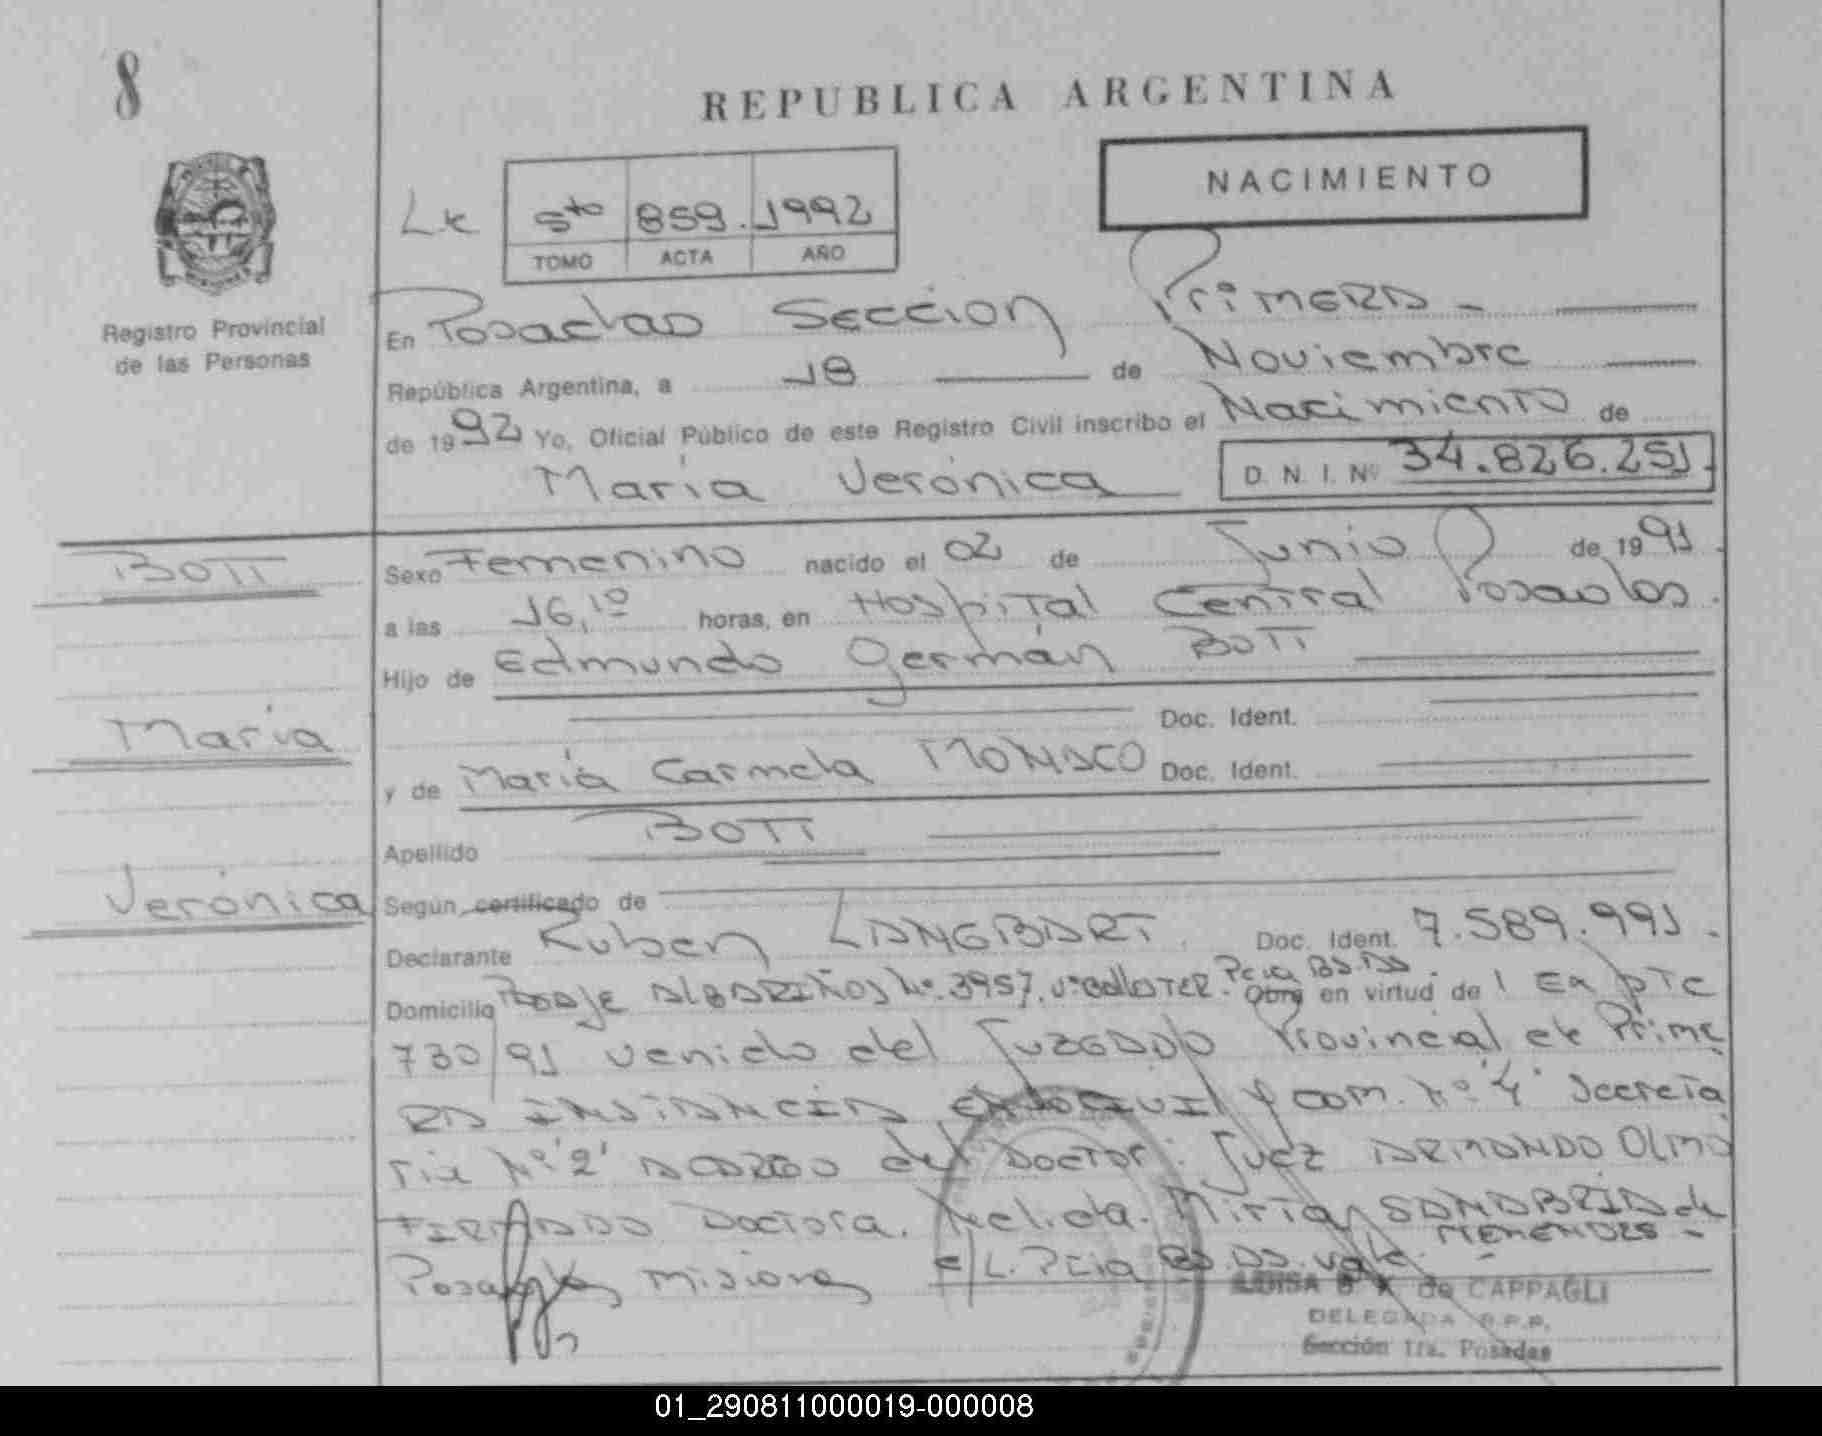 8
REPUBLICA ARGENTINA
NACIMIENTO
5to 859. 1992
TOMO ACTA AÑO
Registro Provincial
de las Personas
En Posadas Sección Primera -
República Argentina, a 18 de Noviembre
de 1992 Yo, Oficial Público de este Registro Civil inscribo el Nacimiento de
María Verónica D. N. I. Nº 34.826.251
BOTI
Sexo Femenino nacido el 02 de Junio de 1991
a las 16,10 horas, en Hospital Central Posadas.
Hijo de Edmundo Germán BOTI
Doc. Ident.
María
y de María Carmela MONACO Doc. Ident.
Apellido BOTI
Verónica
Según certificado de
Declarante Ruben LANGBART. Doc. Ident. 7.589.991.
Domicilio Pasaje ALBARIÑOS Nº. 3957. Vª BALLESTER. Pcia BS.AS. Obra en virtud de Expte
730/91 venido del JUZGADO Provincial de Prime
RA INSTANCIA CIVIL y com. Nº "4" Secreta
ria Nº "2" A CARGO del Doctor: Juez ARMANDO OLMO
FIRMADO Doctora. Nelida. Mirta SANABRIA de
MENENDES -
Posadas Misiones E/L. Pcia BS.AS. vale.
LUISA B. de CAPPAGLI
DELEGADA R.P.P.
Sección 1ra. Posadas
01_290811000019-000008